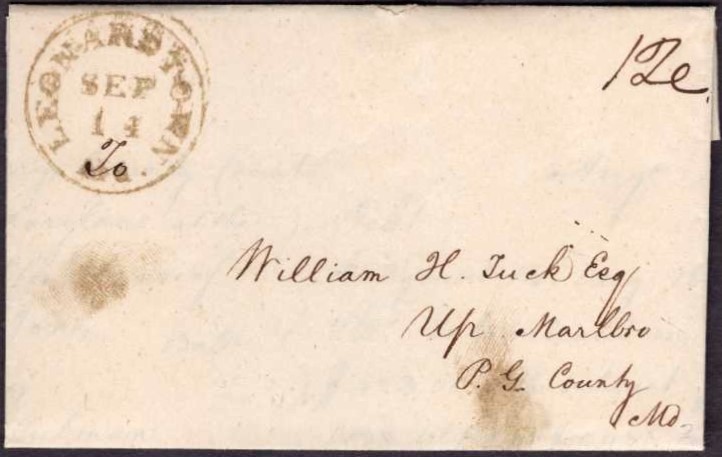 LEONARDTOWN
SEP
14
Md.
12c
To
William H. Tuck Esq
Up. Marlbro
P. G. County
Md.